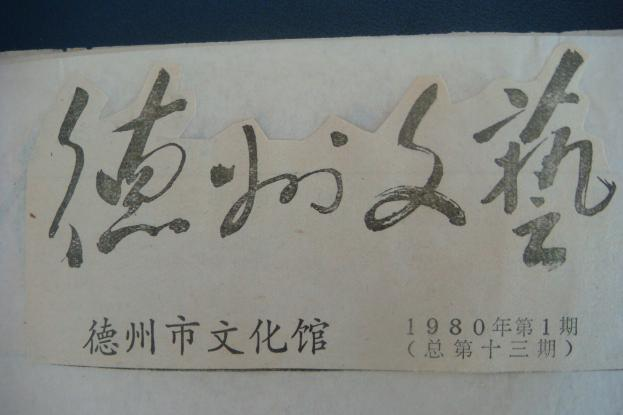 德州文藝
德州市文化馆
1980年第1期
(总第十三期)